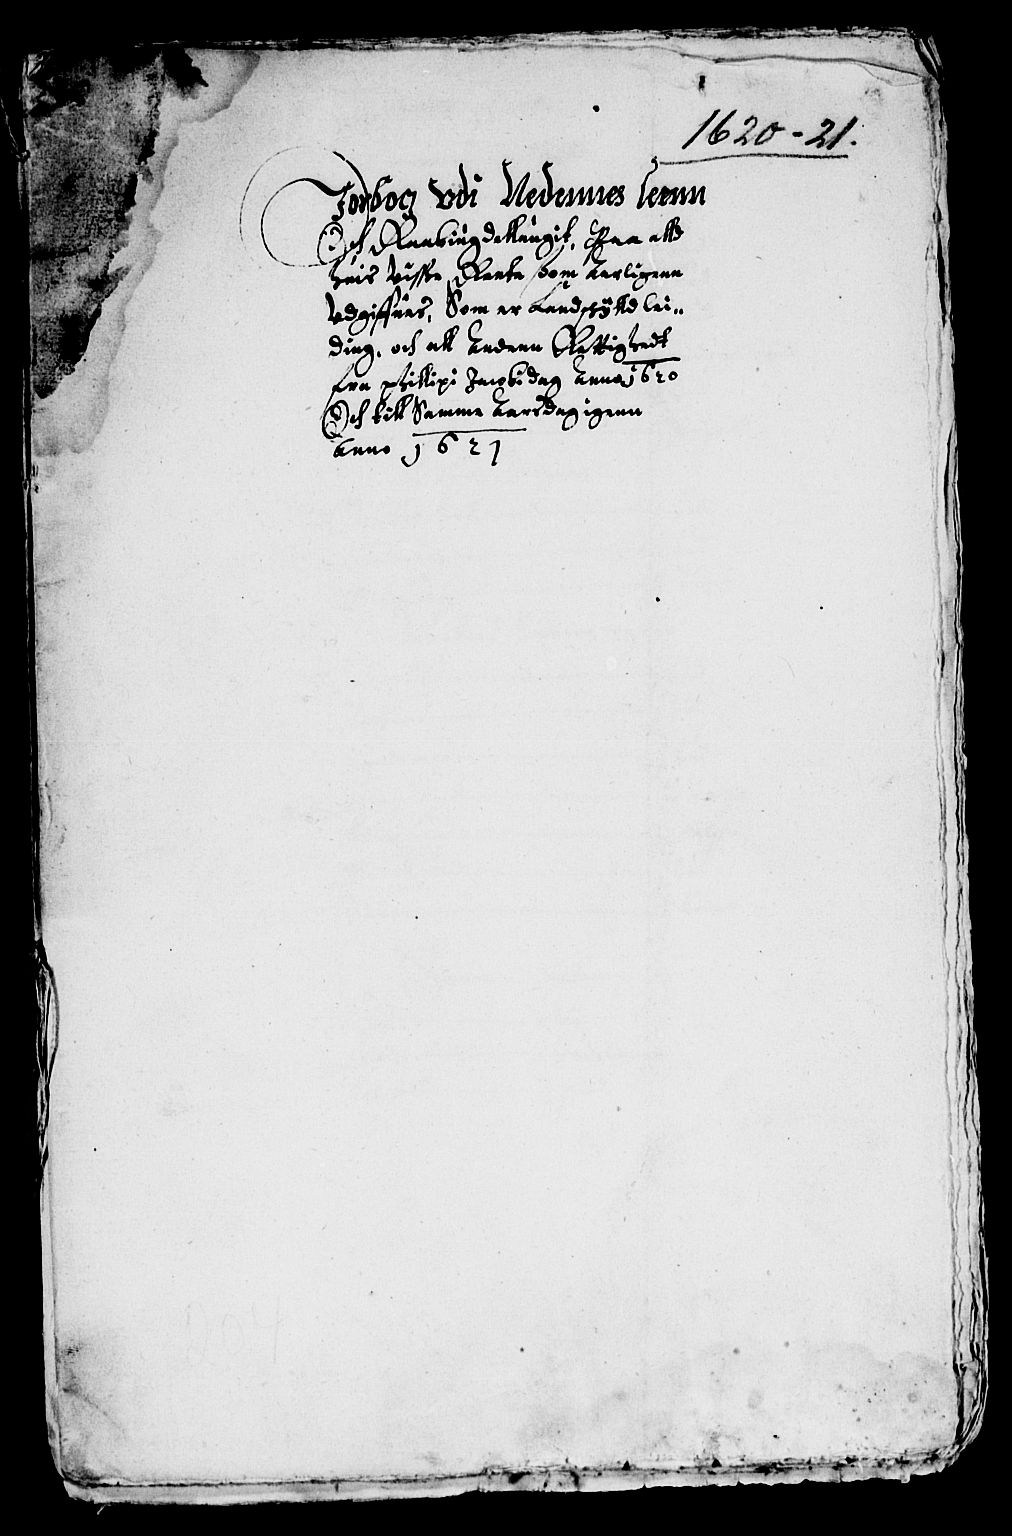 1620-21.
Jordbog udi Nedennes leenn
Och Raabiugdellaugit, Paa alld
huis visse Rente som Aarligenn
udgiffues, Som er Landschylld lei„
ding, och all Andenn Rettighedt
fra philipi Jacobi dag Anno 1620
Och till Samme Aarsdag igenn
Anno 1621